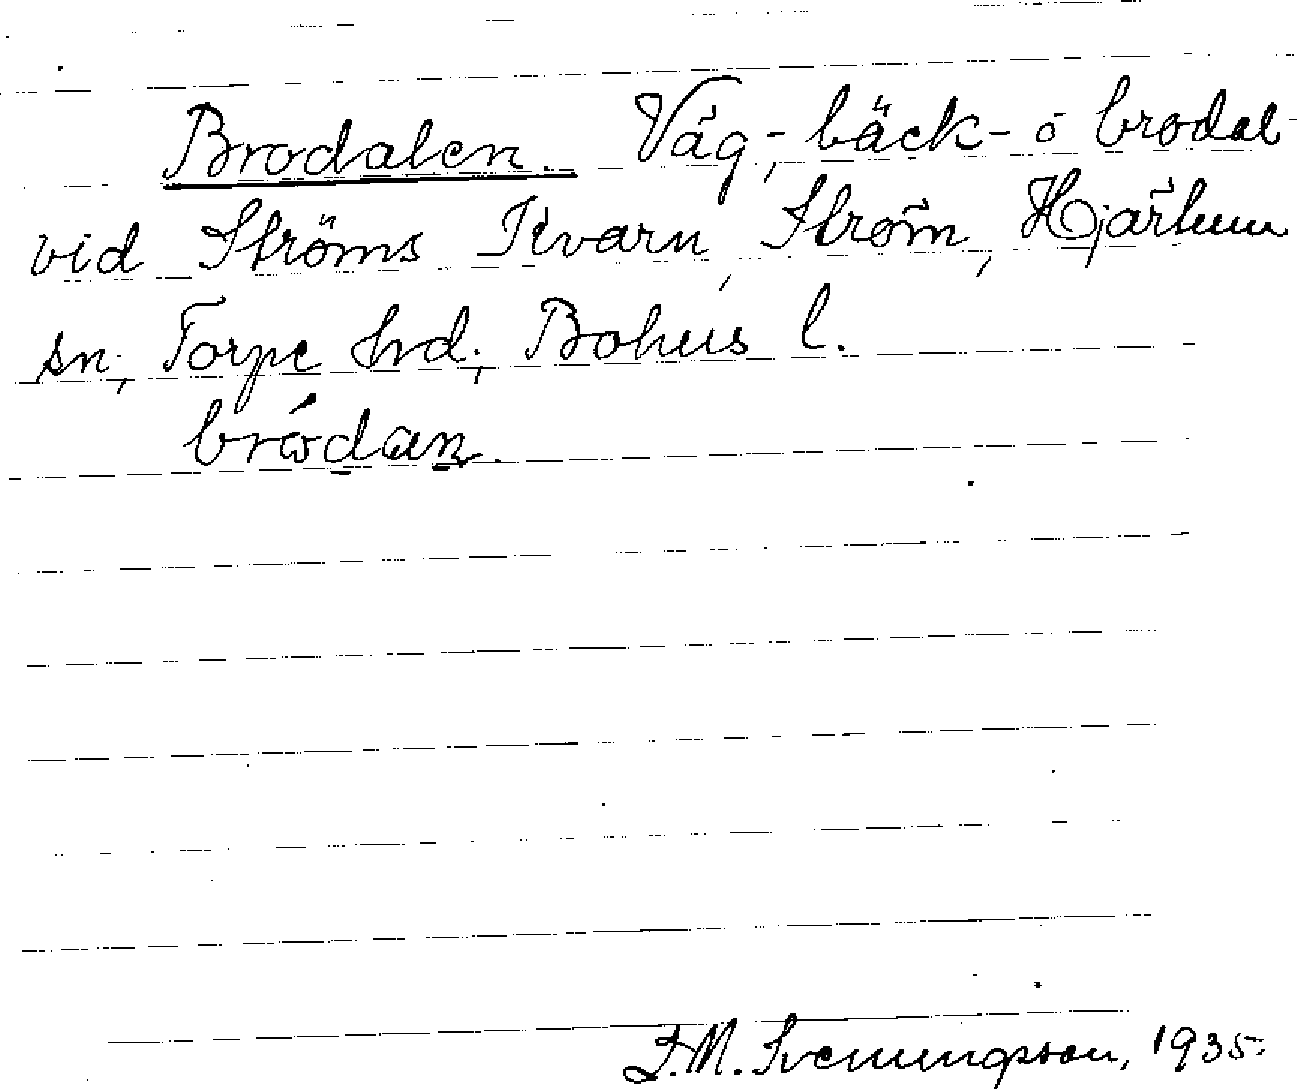 Brodalen. Väg-, bäck- o brodal
vid Ströms Kvarn, Ström, Hjärtum
sn, Torpe hrd, Bohus l.
bródan.
J. M. Svenungsson, 1935.